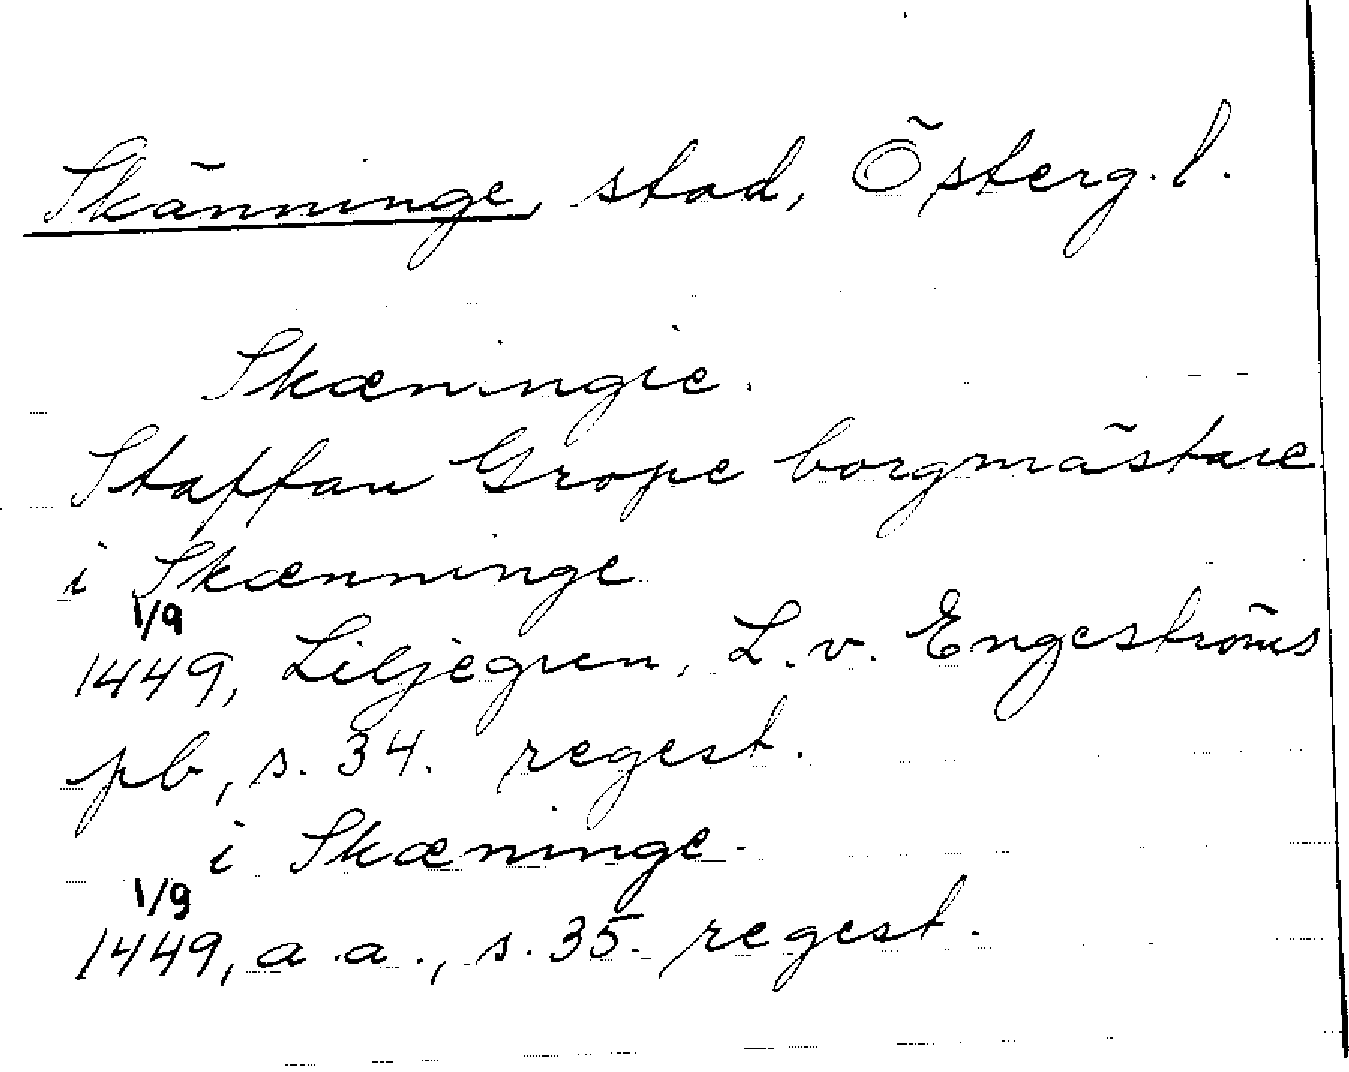 Skänninge, stad, Österg. l.
Skæningie.
Staffan Grope borgmästare
i Skænninge
1/9
1449, Liljegren, L. v. Engeströms
pb, s. 34. regest.
i Skæninge.
1/9
1449, a. a., s. 35. regest.